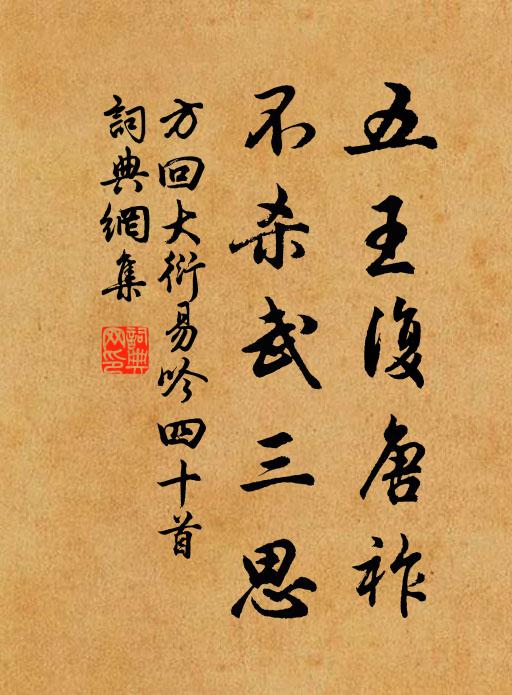 五王復唐祚
不杀武三思
方回大衍易吟四十首
詞典網集
詞典
网印